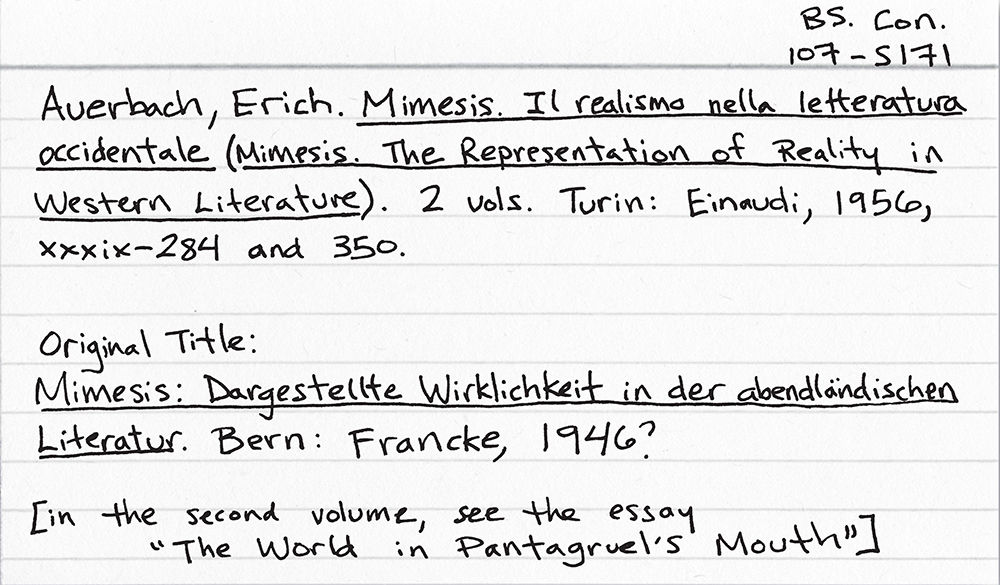 BS. Con.
107-5171
Auerbach, Erich. Mimesis. Il realismo nella letteratura
occidentale (Mimesis. The Representation of Reality in
Western Literature). 2 vols. Turin: Einaudi, 1956,
xxxix-284 and 350.
Original Title:
Mimesis: Dargestellte Wirklichkeit in der abendländischen
Literatur. Bern: Francke, 1946?
[in the second volume, see the essay
"The World in Pantagruel's Mouth"]